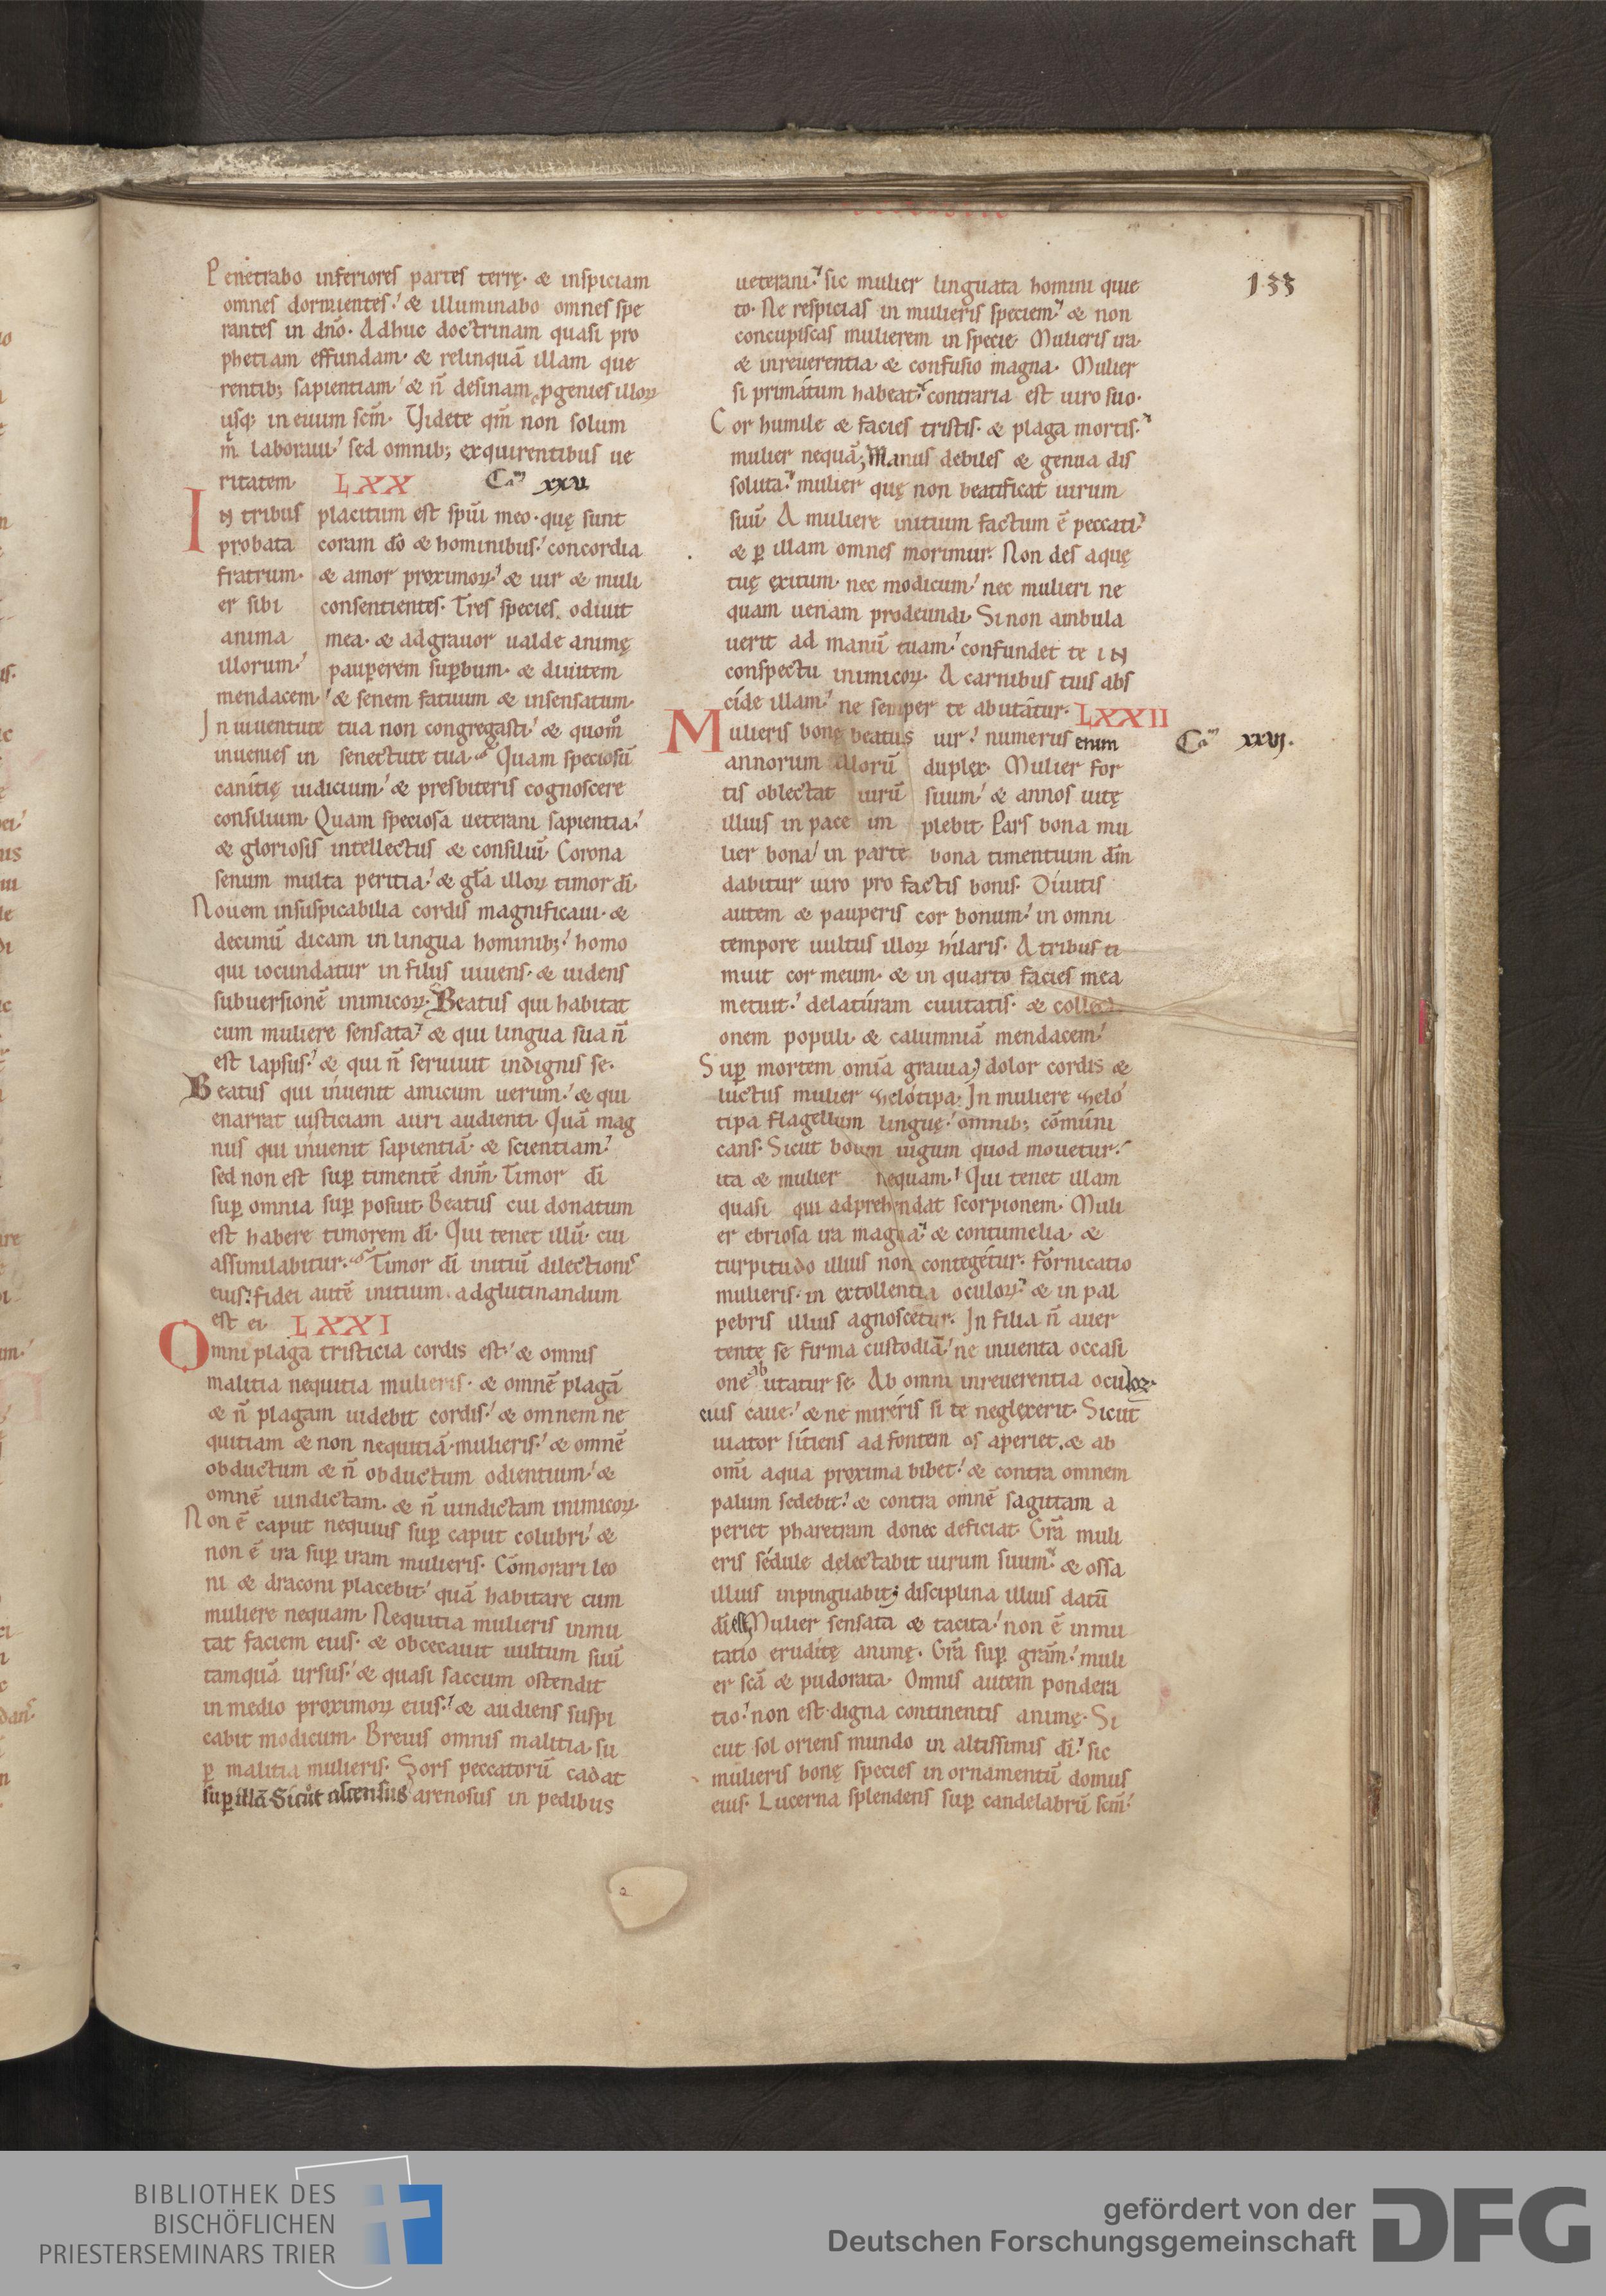 133
Penetrabo inferiores partes terrę· & inspiciam
omnes dormientes· & illuminabo omnes spe
rantes in dn̄o· Adhuc doctrinam quasi pro
phetiam effundam· & relinquā illam que
rentib; sapientiam· & n̄ desinam ꝓgenies illoꝝ
usq; in euum scm̄· Videte qm̄ non solum
m̄ laboraui· sed omnib; exquirentibus ue
ritatem· LXX Cam xxv.
IN tribus placitum est sp̄ui meo· quę sunt
probata coram dō & hominibus· concordia
fratrum· & amor proximoꝝ· & uir & muli
er sibi consentientes· Tres species odiuit
anima mea· & adgrauor ualde animę
illorum· pauperem suꝑbum· & diuitem
mendacem· & senem fatuum & insensatum·
In iuuentute tua non congregasti· & quom̊
inuenies in senectute tua· Quam speciosū
canitię iudicium· & presbiteris cognoscere
consilium· Quam speciosa ueterani sapientia·
& gloriosis intellectus & consiliū· Corona
senum multa peritia· & gl̄a illoꝝ timor dī·
Nouem insuspicabilia cordis magnificaui· &
decimū dicam in lingua hominib;· homo
qui iocundatur in filiis uiuens· & uidens
subuersionē inimicoꝝ· Beatus qui habitat
cum muliere sensata· & qui lingua sua n̄
est lapsus· & qui n̄ seruiuit indignis se·
Beatus qui inuenit amicum uerum· & qui
enarrat iusticiam auri audienti· Quā mag
nus qui inuenit sapientiā· & scientiam·
sed non est suꝑ timentē dnm̄· Timor dī
suꝑ omnia suꝑ posuit· Beatus cui donatum
est habere timorem dī· Qui tenet illū· cui
assimilabitur· Timor dī initiū dilectionis
eius· fidei autē initium· adglutinandum
est ei· LXXI
Omni plaga tristicia cordis est· & omnis
malitia nequitia mulieris· & omnē plagā
& n̄ plagam uidebit cordis· & omnem ne
quitiam & non nequitiā mulieris· & omnē
obductum & n̄ obductum odientium· &
omnē uindictam· & n̄ uindictam inimicoꝝ·
Non ē caput nequius suꝑ caput colubri· &
non ē ira suꝑ iram mulieris· Cōmorari leo
ni & draconi placebit· quā habitare cum
muliere nequam· Nequitia mulieris inmu
tat faciem eius· & obcecauit uultum suū
tamquā ursus· & quasi saccum ostendit
in medio proximoꝝ eius· & audiens suspi
cabit modicum· Breuis omnis malitia su
ꝑ malitia mulieris· Sors peccatorū cadat
suꝑ illā· Sicut ascensus arenosus in pedibus
ueterani· sic mulier linguata homini quie
to· Ne respicias in mulieris speciem· & non
concupiscas mulierem in specie· Mulieris ira
& inreuerentia & confusio magna· Mulier
si primatum habeat· contraria est uiro suo·
Cor humile & facies tristis· & plaga mortis·
mulier nequā; Manus debiles & genua dis
soluta· mulier quę non beatificat uirum
suū· A muliere initium factum ē peccati·
& ꝑ illam omnes morimur· Non des aquę
tuę exitum· nec modicum· nec mulieri ne
quam ueniam prodeundi· Si non ambula
uerit ad manū tuam· confundet te IN
conspectu inimicoꝝ· A carnibus tuis abs
cide illam· ne semper te abutatur· LXXII
Mulieris bonę beatus uir· numerus enim Cam xxvj.
annorum illorū duplex· Mulier for
tis oblectat uirū suum· & annos uitę
illius in pace im plebit· Pars bona mu
lier bona· in parte bona timentium dm̄
dabitur uiro pro factis bonis· Diuitis
autem & pauperis cor bonum· in omni
tempore uultus illoꝝ hilaris· A tribus ti
muit cor meum· & in quarto facies mea
metuit· delaturam ciuitatis· & collecti
onem populi· & calumniā mendacem·
Suꝑ mortem om̄ia grauia· dolor cordis &
luctus mulier zelotipa· In muliere zelo
tipa flagellum linguę· omnib; cōmuni
cans· Sicut boum iugum quod mouetur·
ita & mulier nequam· Qui tenet illam
quasi qui adprehendat scorpionem· Muli
er ebriosa ira magna· & contumelia· &
turpitudo illius non contegetur· Fornicatio
mulieris· in extollentia oculoꝝ· & in pal
pebris illius agnoscetur· In filia n̄ auer
tente se firma custodiā· ne inuenta occasi
one abutatur se· Ab omni inreuerentia oculoꝝ·
eius caue· & ne mireris si te neglexerit· Sicut
uiator sitiens ad fontem os aperiet· & ab
om̄i aqua proxima bibet· & contra omnem
palum sedebit· & contra omnē sagittam a
periet pharetram donec deficiat· Gr̄a muli
eris sedule delectabit uirum suum· & ossa
illius inpinguabit; disciplina illius datū
dī est; Mulier sensata & tacita· non ē inmu
tatio eruditę animę· Gr̄a suꝑ gram̄· muli
er scā & pudorata· Omnis autem pondera
tio· non est digna continentis animę· Si
cut sol oriens mundo in altissimis dī· sic
mulieris bonę species in ornamentū domus
eius· Lucerna splendens suꝑ candelabrū scm̄·
BIBLIOTHEK DES
BISCHÖFLICHEN
PRIESTERSEMINARS TRIER
gefördert von der
Deutschen Forschungsgemeinschaft
DFG